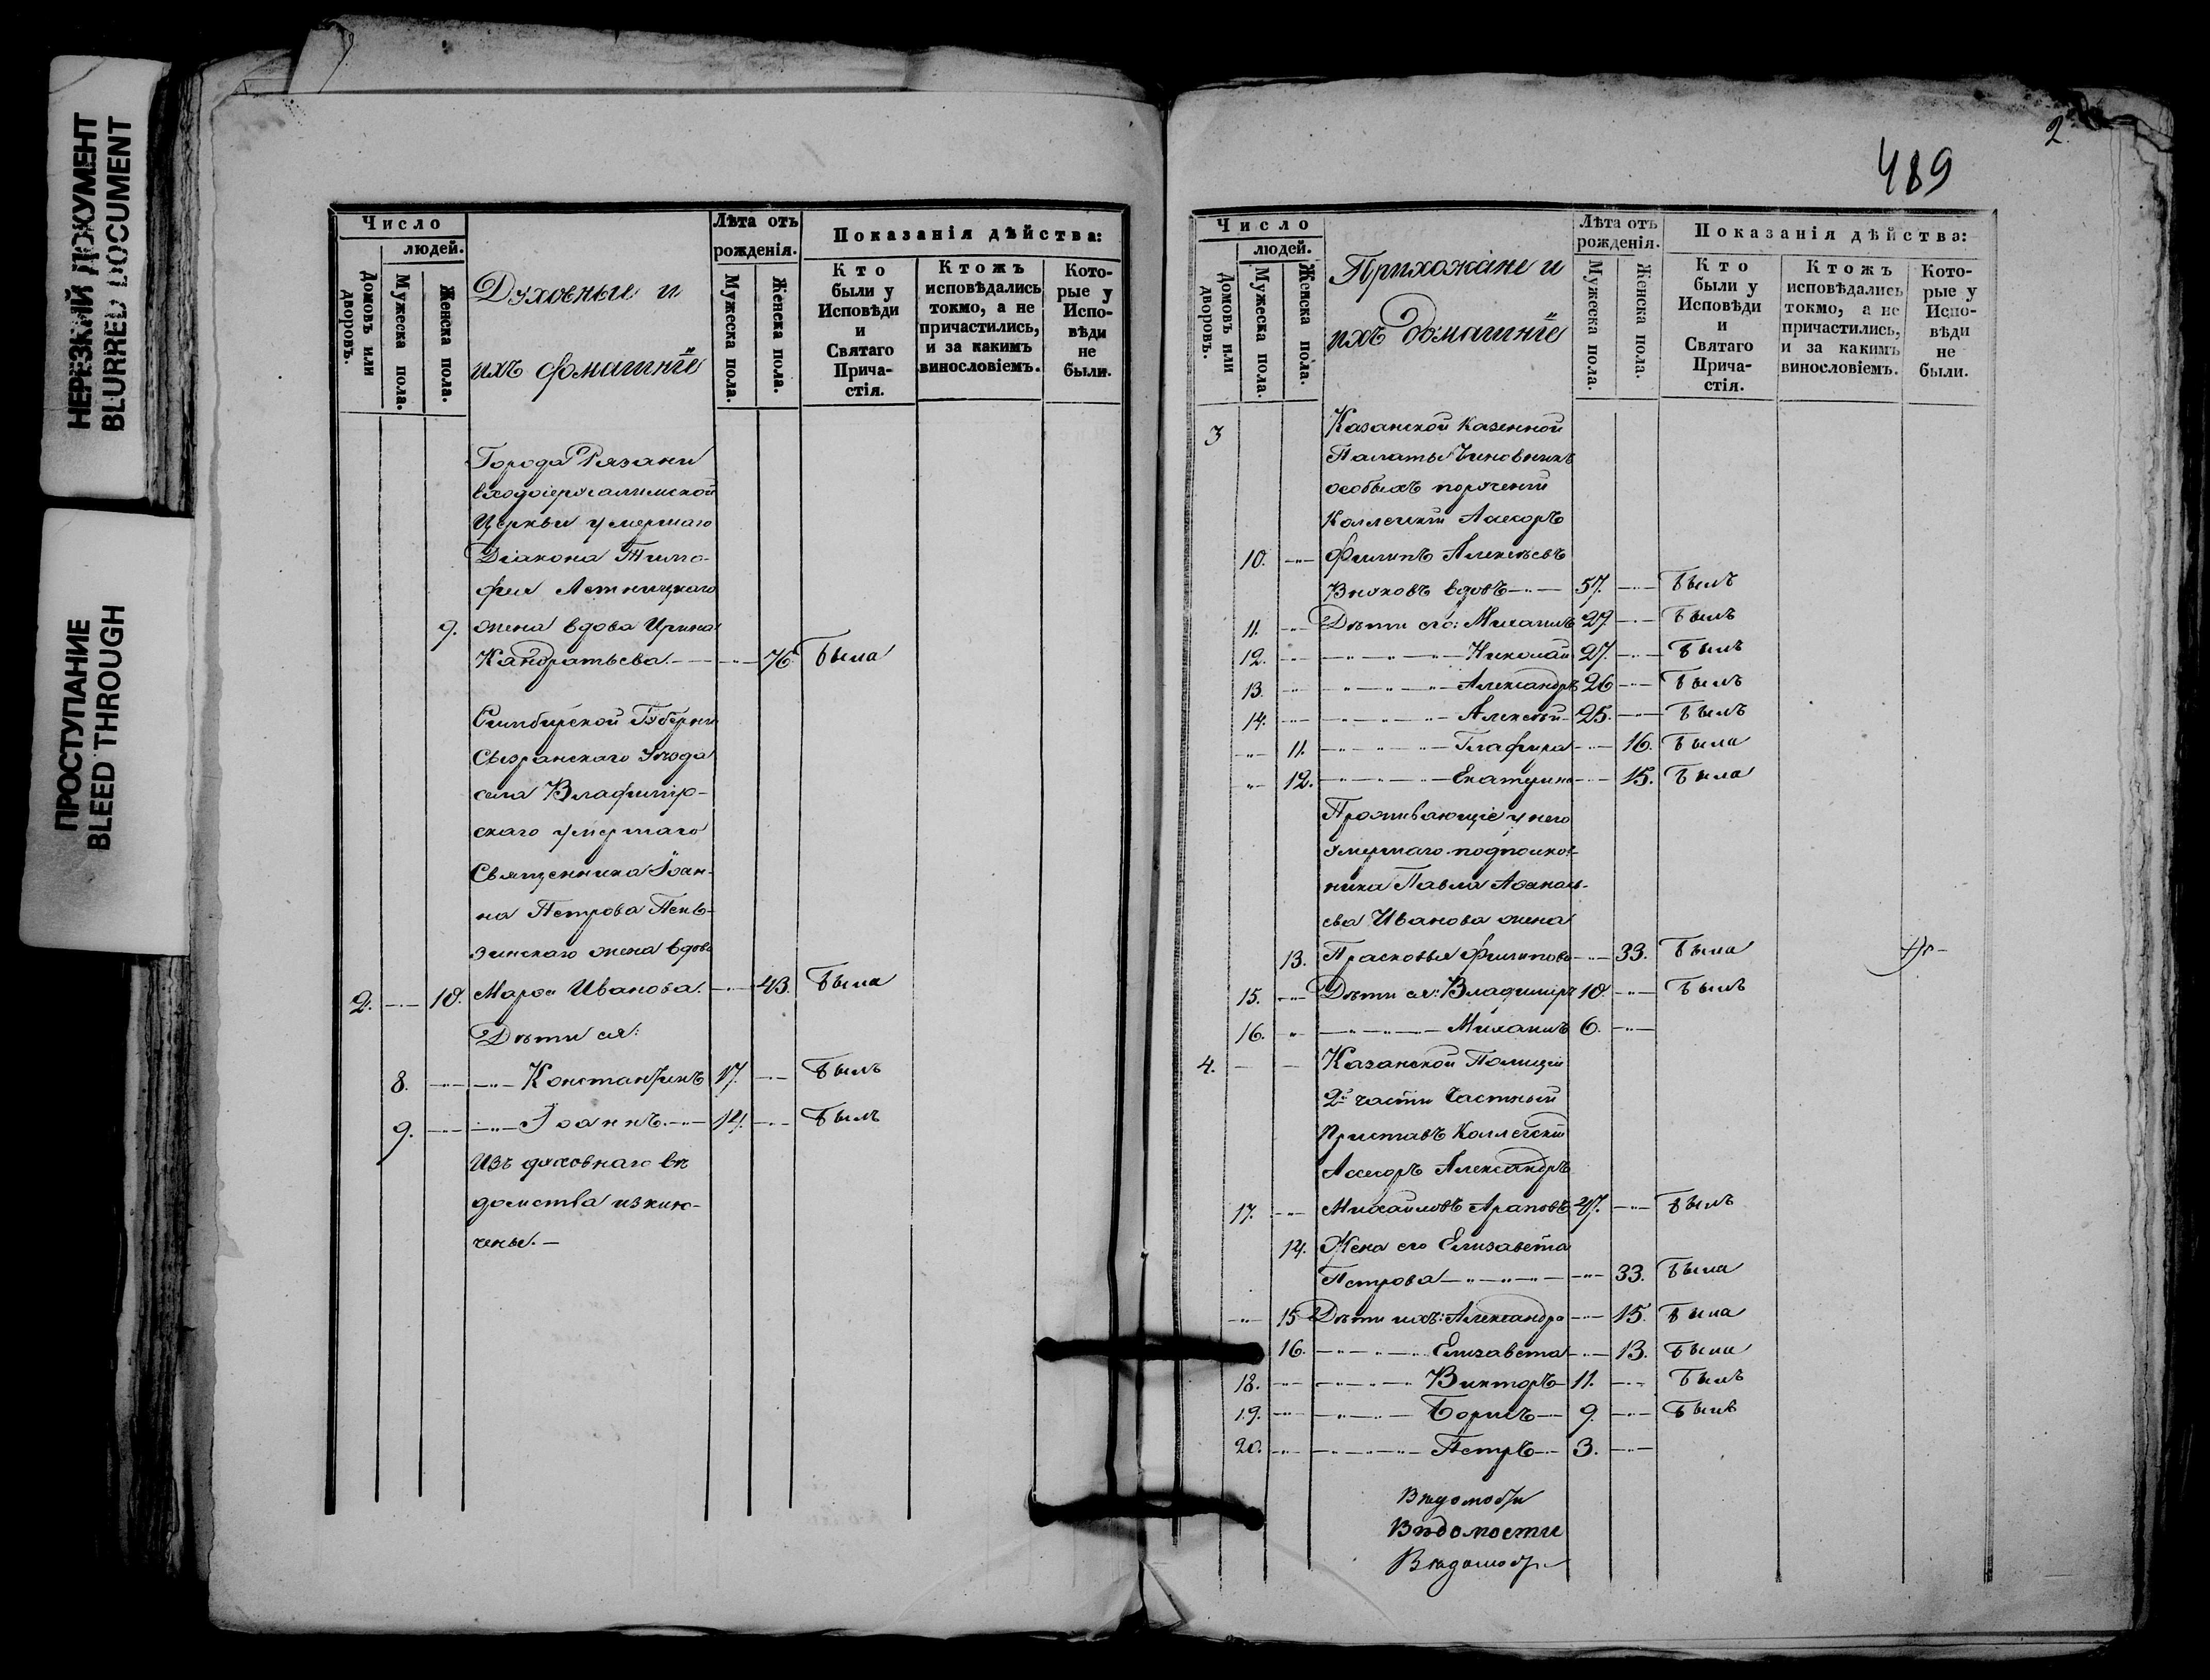 НЕРЕЗКИЙ ДОКУМЕНТ
BLURRED DOCUMENT
ПРОСТУПАНИЕ
BLEED THROUGH
Число
людей.
Домовъ или дворовъ.
Мужеска пола.
Женска пола.
Духовные и
ихъ домашніе
Лѣта отъ
рожденія.
Мужеска пола.
Женска пола.
Показанія дѣйства:
Кто
были у
Исповѣди
и
Святаго
Прича-
стія.
Ктожъ
исповѣдались
токмо, а не
причастились,
и за какимъ
винословіемъ.
Кото-
рые у
Испо-
вѣди
не
были.
Города Рязани
входоіерусалимской
Церкви умершаго
Діакона Тимо-
фея
9. жена вдова Ирина
Кандратьева. 76. Была
Симбирской Губерніи
Сызранскаго Уезда
села Владимір-
скаго умершаго
Священника Іоан-
на Петрова Пень-
зинскаго жена вдова
2. 10. Марѳа Иванова. 43. Была
Дѣти ея:
8. Константинъ 17. Былъ
9. Іоаннъ. 14. Былъ
Изъ духовнаго вѣ
домства исклю-
чены.
2
489
Число
людей.
Домовъ или дворовъ.
Мужеска пола.
Женска пола.
Прихожане и
ихъ домашніе
Лѣта отъ
рожденія.
Мужеска пола.
Женска пола.
Показанія дѣйства:
Кто
были у
Исповѣди
и
Святаго
Прича-
стія.
Ктожъ
исповѣдались
токмо, а не
причастились,
и за какимъ
винословіемъ.
Кото-
рые у
Испо-
вѣди
не
были.
3 Казанской Казенной
Палаты Чиновникъ
особыхъ порученій
Коллежкій Асесоръ
10. Филипъ Алексѣевъ
Внуковъ вдовъ 57. Былъ
11. Дѣти его: Михаилъ 29. Былъ
12. Николай 27. Былъ
13. Александръ 26 Былъ
14. Алексѣй 25. Былъ
11. Глафира 16. Была
12. Екатерина 15. Была
Проживающіе у него
умершаго подполков-
ника Павла Афанась-
ева Иванова жена
13. Прасковья Филипова 33. Была
15. Дѣти ея: Владимиръ 10. Былъ
16. Михаилъ 6.
4. Казанской Полиціи
2й части Частный
Приставъ Коллежскій
Асесоръ Александръ
17. Михайловъ Араповъ 47. Былъ
14. Жена его Елизавета
Петрова 33. Была
15 Дѣти ихъ: Александра 15. Была
16. Елизавета 13. Была
18. Викторъ 11. Былъ
19. Борисъ 9. Былъ
20. Петръ 3.
Вѣдомости
Вѣдомости
Вѣдомост